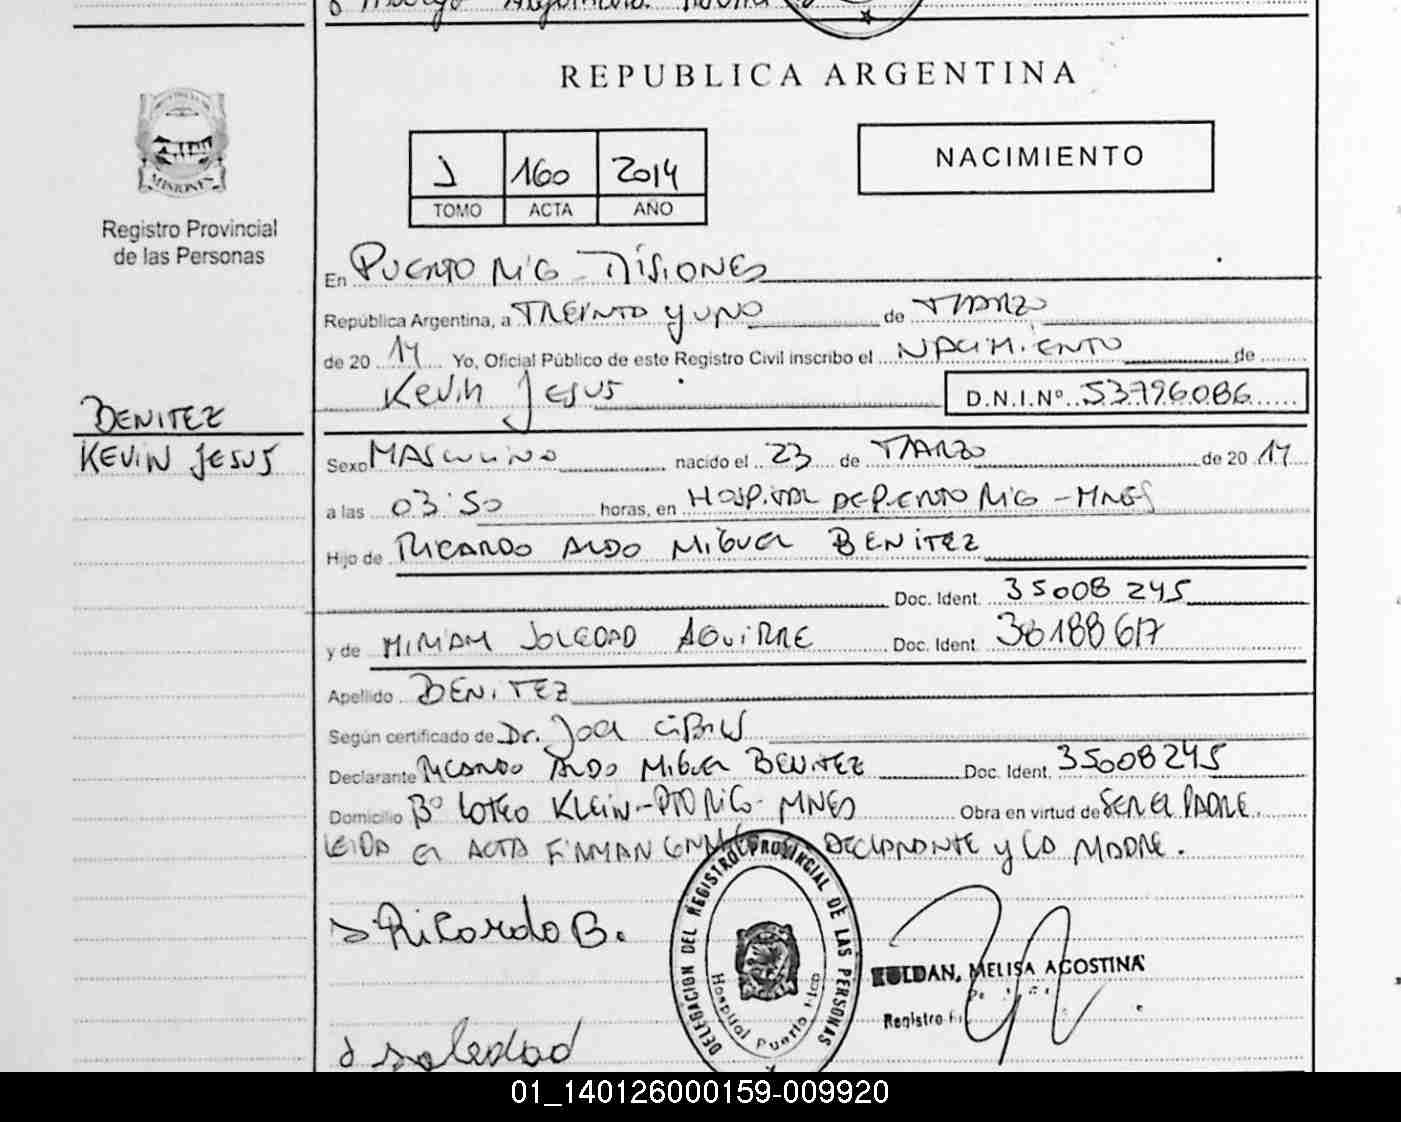 REPUBLICA ARGENTINA
MISIONES
Registro Provincial
de las Personas
J 160 2014
TOMO ACTA AÑO
NACIMIENTO
En PUERTO RICO - MISIONES
República Argentina, a TREINTA Y UNO de MARZO
de 20 14 Yo, Oficial Público de este Registro Civil inscribo el NACIMIENTO de
KEVIN JESUS D.N.I.Nº 53796086
BENITEZ
KEVIN JESUS
Sexo MASCULINO nacido el 23 de MARZO de 20 14
a las 03:50 horas, en HOSPITAL DE PUERTO RICO - MNES
Hijo de RICARDO ALDO MIGUEL BENITEZ
Doc. Ident. 35008245
y de MIRIAM SOLEDAD AGUIRRE Doc. Ident. 38188617
Apellido BENITEZ
Según certificado de Dr. JOEL
Declarante RICARDO ALDO MIGUEL BENITEZ Doc. Ident. 35008245
Domicilio Bº LOTEO KLEIN - PTO RICO - MNES Obra en virtud de SER EL PADRE.
LEIDA EL ACTA FIRMAN DECLARANTE Y LA MADRE.
Ricardo B.
Soledad
DELEGACION DEL REGISTRO PROVINCIAL DE LAS PERSONAS
Hospital Puerto Rico
ROLDAN, MELISA AGOSTINA
Registro
01_140126000159-009920